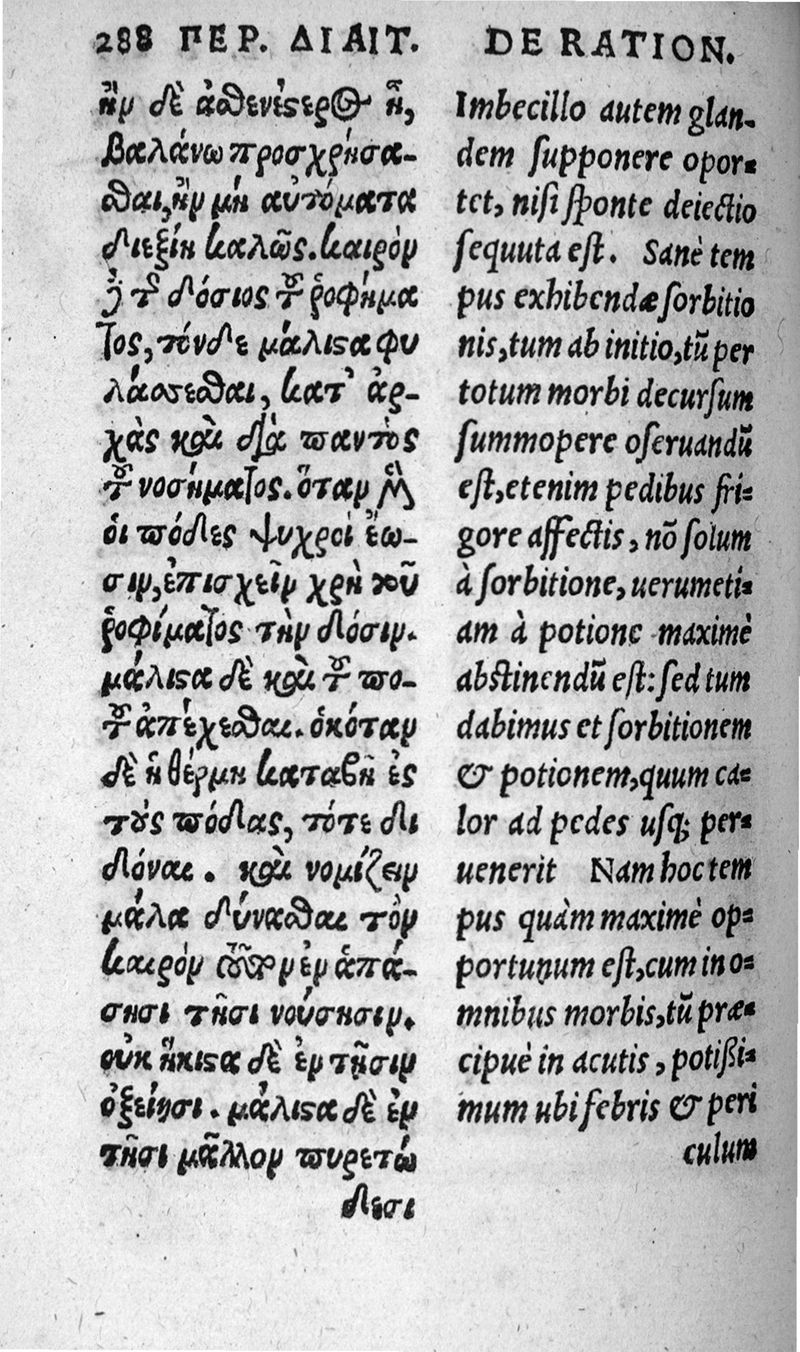 288 ΠΕΡ. ΔΙΑΙΤ.
ἢν δὲ ἀσθενέστερος ᾖ,
βαλάνῳ προσχρήσα-
σθαι, ἢν μὴ αὐτόματα
διεξίῃ καλῶς. καιρὸν
δὲ τῆς δόσιος τοῦ ῥοφήμα
τος, τόνδε μάλιστα φυ
λάσσεσθαι, κατ' ἀρ-
χὰς καὶ διὰ παντὸς
τοῦ νοσήματος. ὅταν μὲν
οἱ πόδες ψυχροὶ ἔω-
σιν, ἐπισχεῖν χρὴ τοῦ
ῥοφίματος τὴν δόσιν.
μάλιστα δὲ καὶ τοῦ πο-
τοῦ ἀπέχεσθαι. ὁκόταν
δὲ ἡ θέρμη καταβῇ ἐς
τοὺς πόδας, τότε δι
δόναι. καὶ νομίζειν
μάλα δύνασθαι τὸν
καιρὸν τοῦτον ἐν ἁπά-
σησι τῇσι νούσησιν.
οὐκ ἥκιστα δὲ ἐν τῇσιν
ὀξείῃσι. μάλιστα δὲ ἐν
τῇσι μᾶλλον πυρετώ
δεσι
DE RATION.
Imbecillo autem glan-
dem supponere opor-
tet, nisi sponte deiectio
sequuta est. Sanè tem
pus exhibendæ sorbitio
nis, tum ab initio, tū per
totum morbi decursum
summopere oseruandū
est, etenim pedibus fri-
gore affectis, nō solum
à sorbitione, uerumeti-
am à potione maximè
abstinendū est: sed tum
dabimus et sorbitionem
& potionem, quum ca-
lor ad pedes usq; per-
uenerit Nam hoc tem
pus quàm maximè op-
portunum est, cum in o-
mnibus morbis, tū præ-
cipuè in acutis, potißi-
mum ubi febris & peri
culum